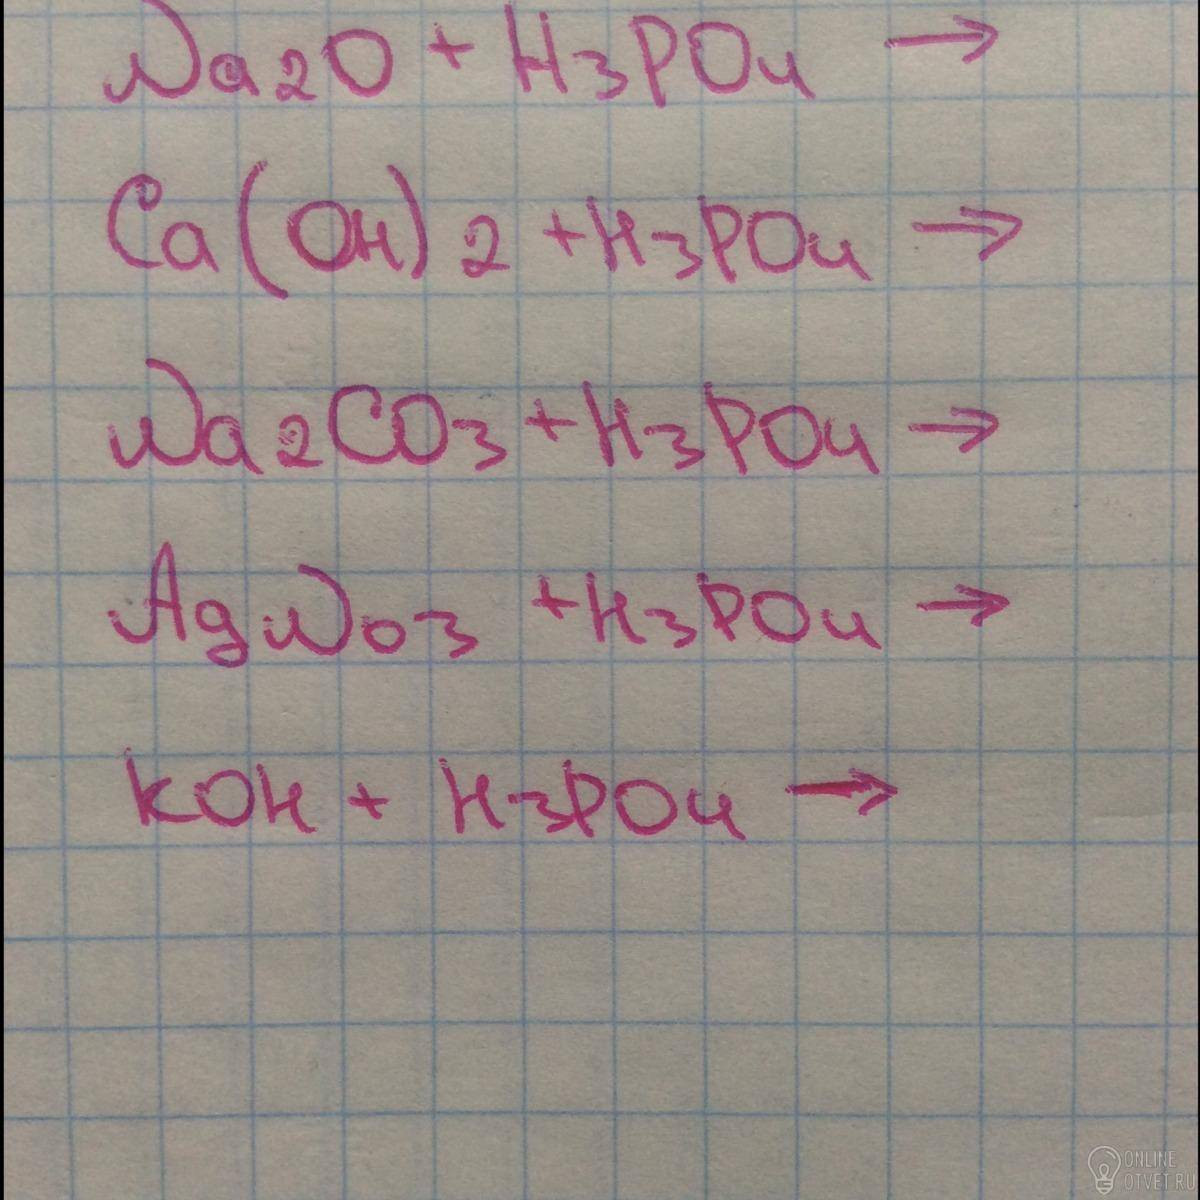 Na2O + H3PO4 →
Ca(OH)2 + H3PO4 →
Na2CO3 + H3PO4 →
AgNO3 + H3PO4 →
KOH + H3PO4 →
ONLINE
OTVET.RU